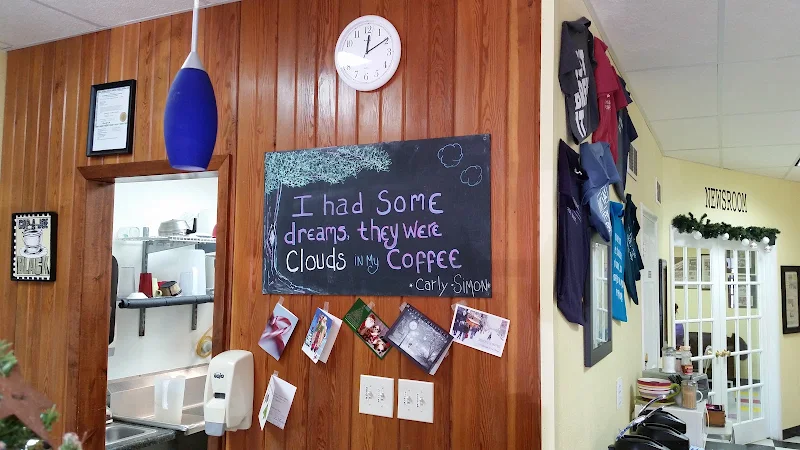 I had Some
dreams, they were
Clouds IN My Coffee
• Carly Simon •
NEWSROOM
GOJO
BLACK